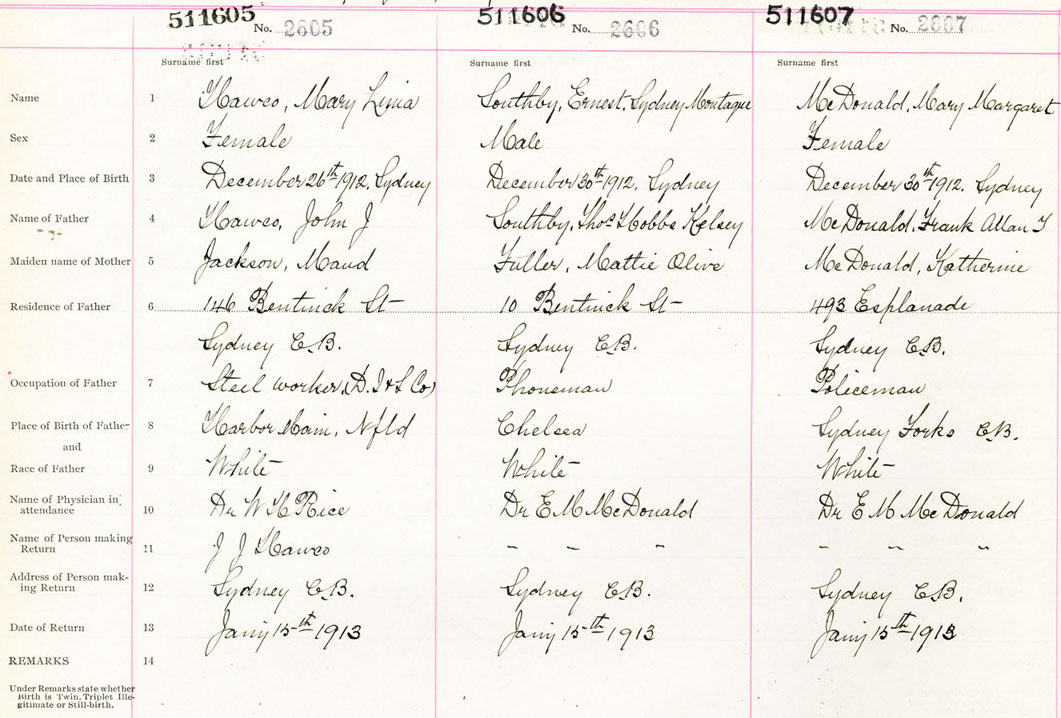 511605 511606 511607
No. 2605 No. 2606 No. 2607
Surname first Surname first Surname first
Name 1 Hawco, Mary Southby, Ernest. Sydney Montague McDonald, Mary Margaret
Sex 2 Female Male Female
Date and Place of Birth 3 December 26th 1912, Sydney December 30th 1912, Sydney December 30th 1912. Sydney
Name of Father 4 Hawco, John J Southby, Thos Hobbs Kelsey McDonald, Frank Allan
Maiden name of Mother 5 Jackson, Maud Fuller, Mattie Olive McDonald, Katherine
Residence of Father 6 146 Bentinck St 10 Bentinck St 493 Esplanade
Sydney C.B. Sydney C.B. Sydney C.B.
Occupation of Father 7 Steel worker, (D. I & S Co) Phoneman Policeman
Place of Birth of Father 8 Harbor Main, Nfld Chelsea Sydney Forks C.B.
and
Race of Father 9 White White White
Name of Physician in attendance 10 Dr W H Rice Dr E M McDonald Dr E M McDonald
Name of Person making Return 11 J J Hawco " " " " " "
Address of Person mak-ing Return 12 Sydney C.B. Sydney C.B. Sydney C.B.
Date of Return 13 Jany 15th 1913 Jany 15th 1913 Jany 15th 1913
REMARKS 14
Under Remarks state whether
Birth is Twin, Triplet Ille-
gitimate or Still-birth.